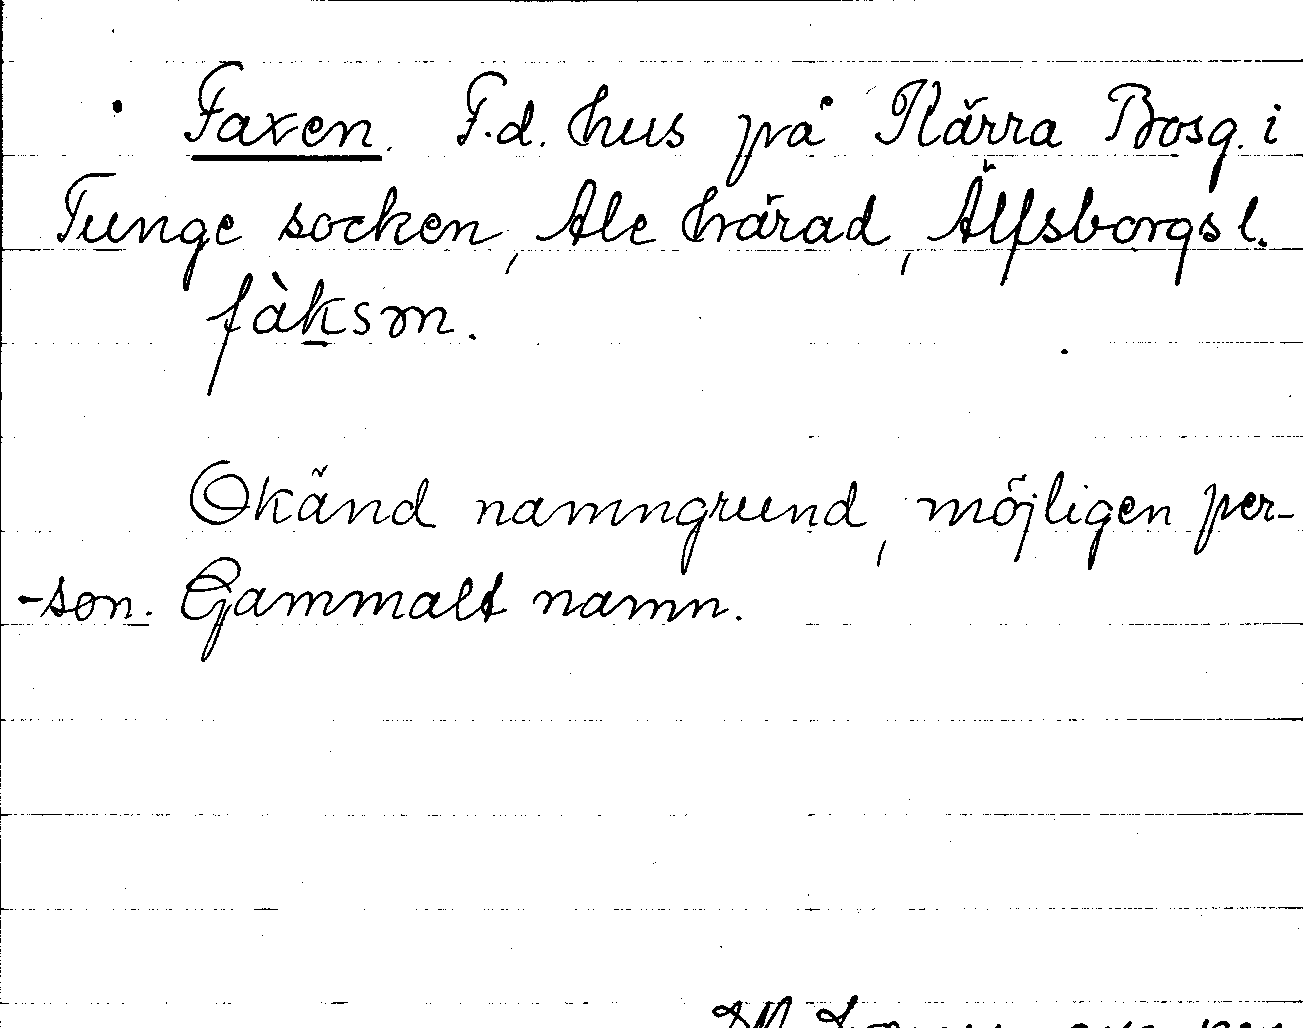 Faxen. F.d. hus på Kärra Bosg. i
Tunge socken, Ale härad, Älfsborgs l.
fàksɷn.
Okänd namngrund, möjligen per-
-son. Gammalt namn.